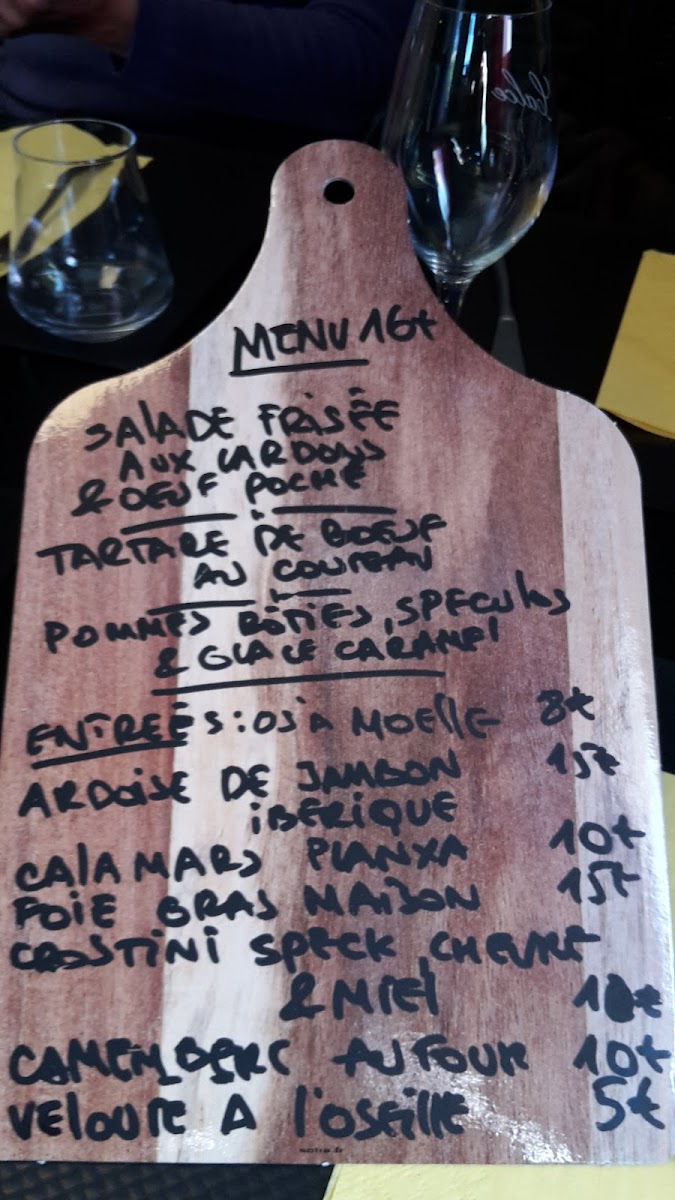 MENU 16€
SALADE FRISÉE
AUX LARDONS
& OEUF POCHÉ
TARTARE DE BOEUF
AU COUTEAU
POMMES RÔTIES, SPECULOS
& GLACE CARAMEL
ENTREES: OS A MOELLE 8€
ARDOISE DE JAMBON 15€
IBERIQUE
CALAMARS PLANXA 10€
FOIE GRAS MAISON 15€
CROSTINI SPECK, CHEVRE
& MIEL 10€
CAMEMBERT AU FOUR 10€
VELOUTE A L'OSEILLE 5€